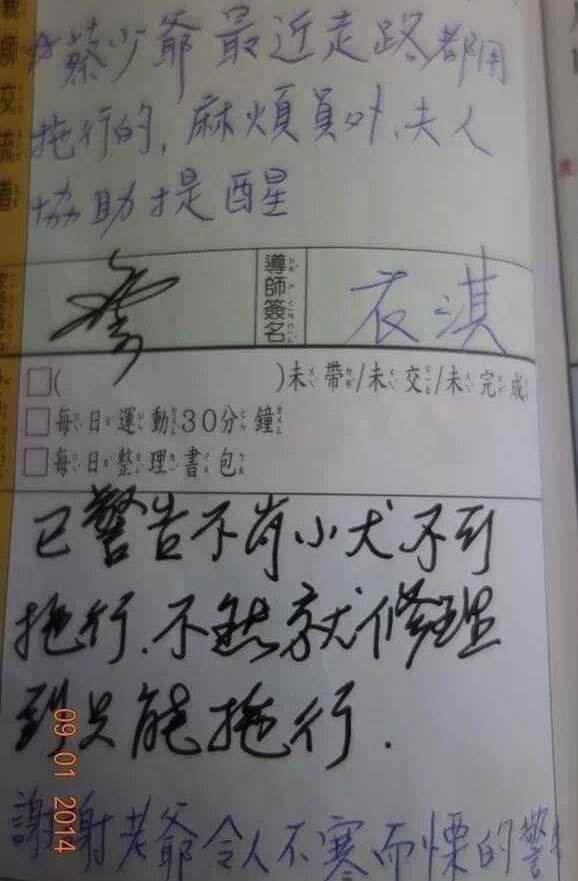 親師交流道
☆蔡少爺最近走路都用
拖行的,麻煩員外、夫人
協助提醒
導師簽名
衣淇
□( )未帶/未交/未完成
□每日運動30分鐘
□每日整理書包
已警告不肖小犬不可
拖行.不然就修理
到只能拖行.
謝謝老爺令人不寒而慄的警
09 01 2014